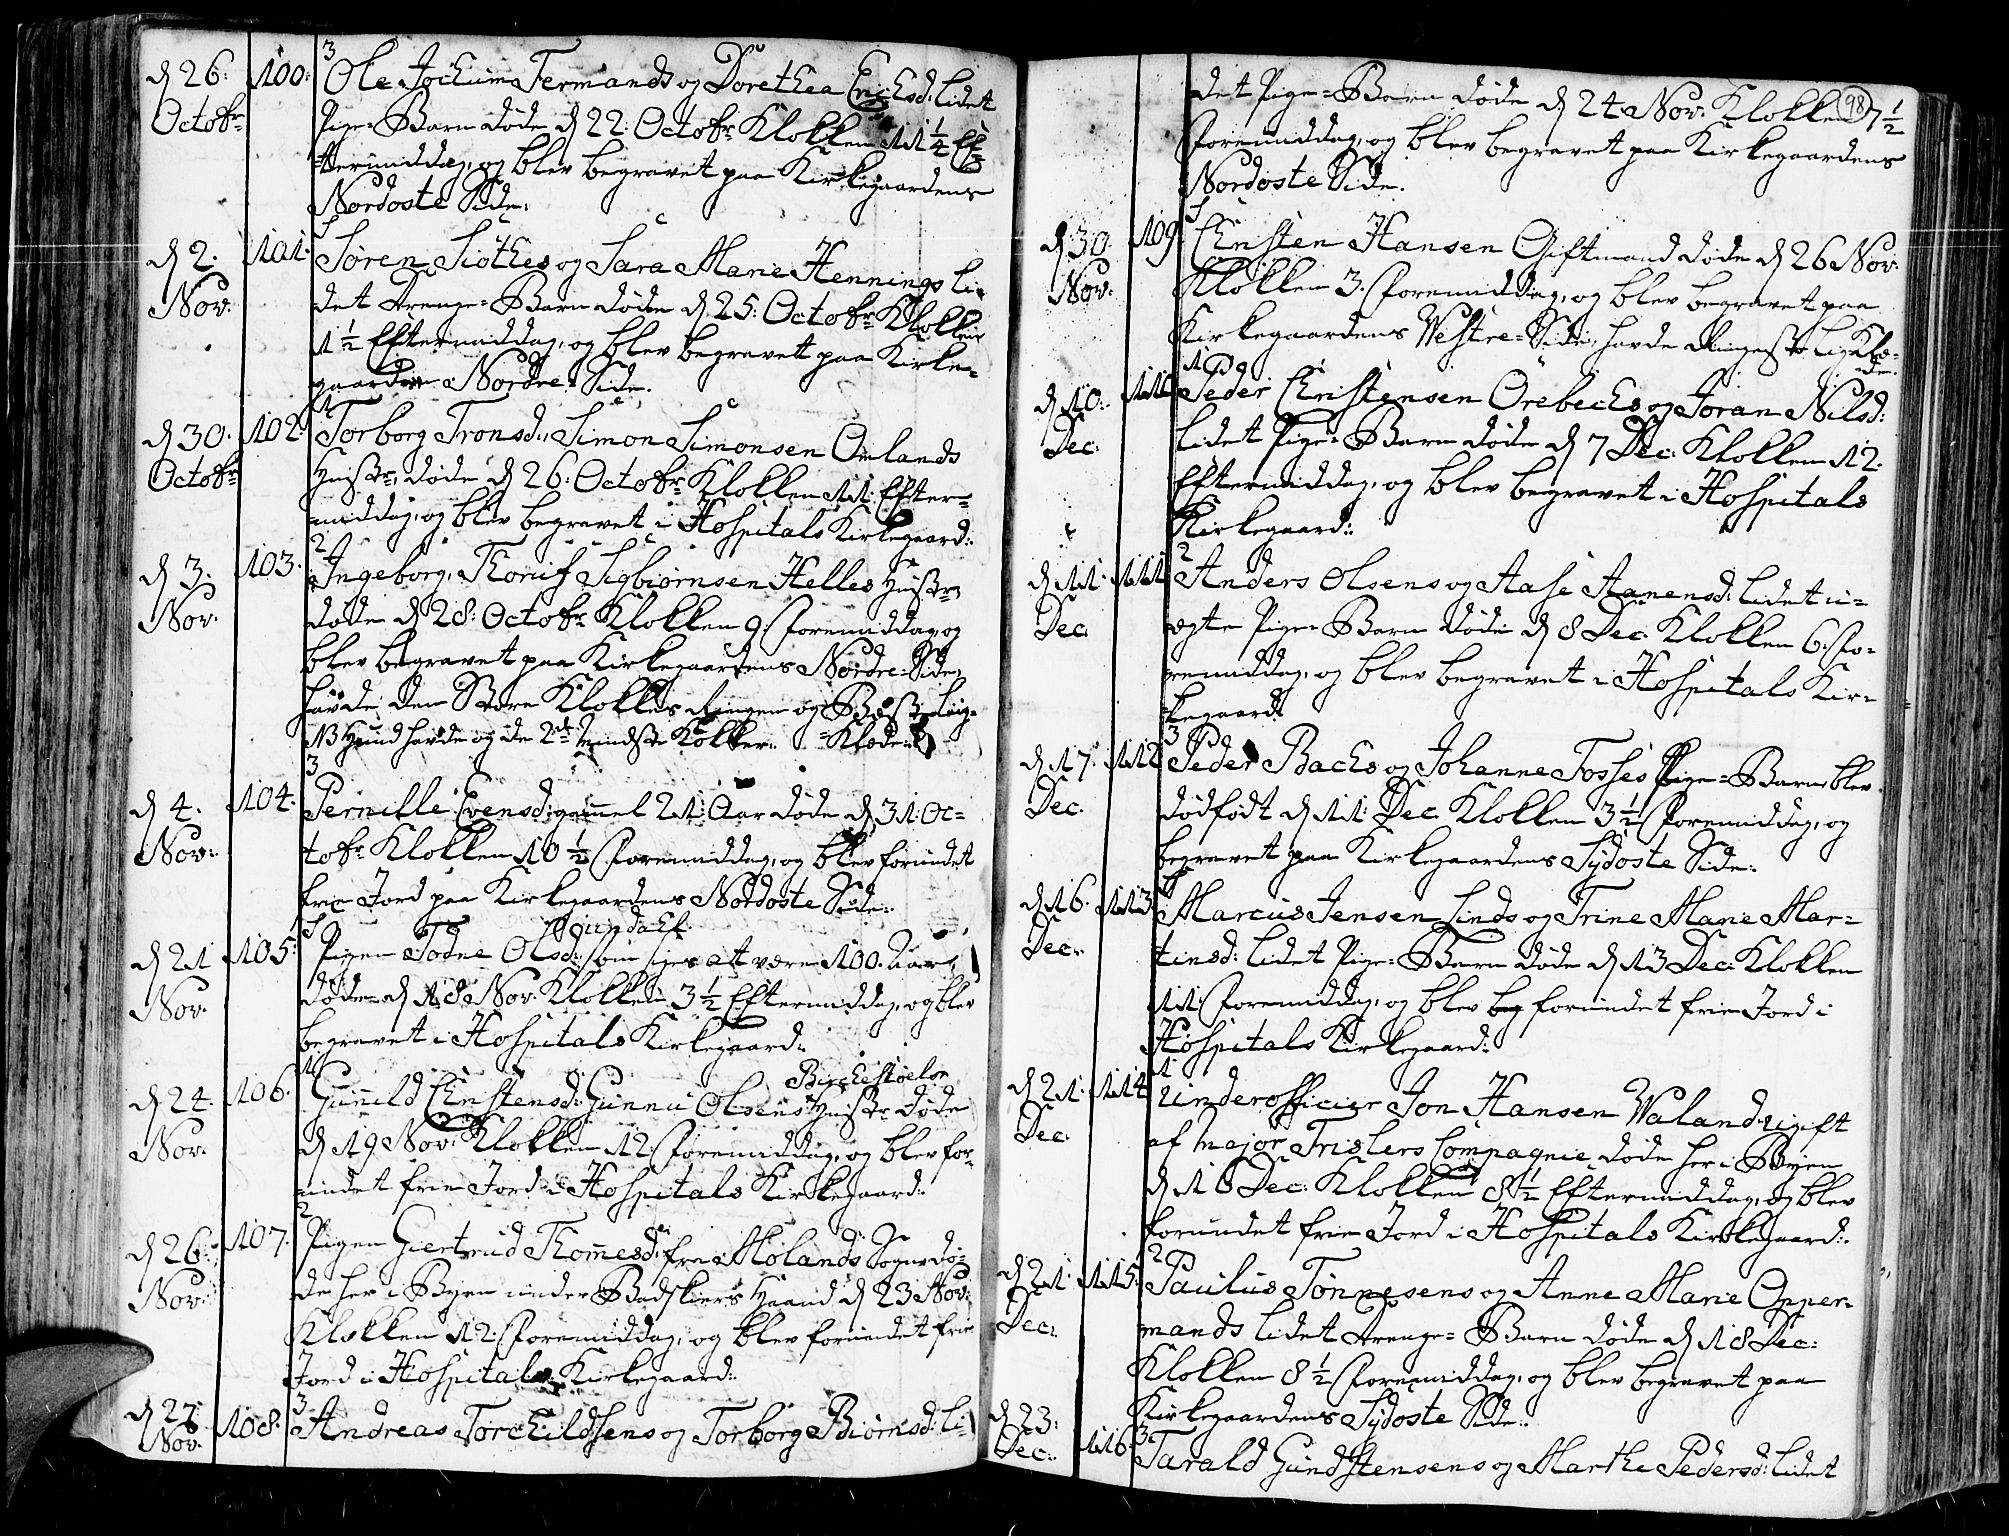 d. 26. Octobr 100: 3 Ole Jochum Fermands og Dorethea Erichsd: lidet
Pige-Barn døde d. 22: Octobr Klokken 11 1/4 Ef-
termiddag, og blev begravet paa Kirkegaardens
Nordoste Side.
d. 2. Nov. 101: Søren Siøthes og Sara Marie Hennings li-
det Drenge-Barn døde d. 25: Octobr Klokken
1 1/2 Eftermiddag, og blev begravet paa Kirke-
gaardens Nordre Side.
d. 30. Octobr 102: 1 Torborg Tronsd:, Simon Simonsen Omlands
Hustr: døde d. 26: Octobr Klokken 11 Efter-
middag, og blev begravet i Hospitals Kirkegaard:
d. 3. Nov. 103. 2 Ingeborg, Thorif Sigbiørnsen Helles Hustr:
døde d. 28: Octobr Klokken 9. Foremiddag, og
blev begravet paa Kirkegaardens Nordre Side,
havde den Store Klokkes Ringen og Beste Liig-
Klæde:
NB Hund havde og de 2de Mindste Kolker.
d. 4. Nov: 104. 3 Pernille Evensd: gamel 21 Aar døde d. 31 Oc-
tobr Klokken 10 1/2 Foremiddag, og blev forundet
frie Jord paa Kirkegaardens Nordoste Side.
d. 21 Nov. 105: Pigen Todne Olsd: som siges at være 100. Aar,
døde d. 18 Nov. Klokken 3 1/2 Eftermiddag, og blev
begravet i Hospitals Kirkegaard:
d. 24. Nov. 106. 1 Gunild Christensd: Gunnu Olsens Birchestøelen Hustr: døde
d. 19 Nov. Klokken 12 Foremiddag, og blev for-
undet frie Jord i Hospitals Kirkegaard:
d. 26: Nov: 107. 2 Pigen Giertrud Thomesd: fra Molands Sogn dø-
de her i Byen under Badskiers Haand d. 23 Nov:
Klokken 12: Foremiddag, og blev forundet frie
Jord i Hospitals Kirkegaard:
d. 27 Nov. 108: 3 Andreas Torchildsens og Torborg Biørnsd: li-
98
det Pige-Barn døde d. 24 Nov. Klokken 7 1/2
Foremiddag, og blev begravet paa Kirkegaardens
Nordoste Side.
d. 30. Nov: 109. Christen Hansen Giftmand døde d. 26 Nov.
Klokken 3. Foremiddag, og blev begravet paa
Kirkegaardens Westre-Side, havde Ringeste Lig Klæ-
de.
d. 10: Dec: 110 1 Peder Christensen Örebechs og Joran Nilsd:
lidet Pige-Barn døde d. 7 Dec: Klokken 12.
Eftermiddag, og blev begravet i Hospitals
Kirkegaard:
d. 11. Dec. 111 2 Anders Olsens og Aase Aanensd: lidet u-
ægte Pige-Barn døde d. 8 Dec: Klokken 6. Fo-
remiddag, og blev begravet i Hospitals Kir-
kegaard:
d. 17. Dec. 112 3 Peder Bachs og Johanne Fosses Pige-Barn blev
dødfødt d. 11: Dec: Klokken 3 1/2 Foremiddag, og
begravet paa Kirkegaardens Sydoste Side:
d. 16. Dec. 113. Marcus Jensen Linds og Trine Marie Mar-
tinsd: lidet Pige-Barn døde d. 13 Dec: Klokken
11: Foremiddag, og blev beg forundet frie Jord i
Hospitals Kirkegaard:
d. 21. Dec. 114 1 Underofficier Jon Hansen Waland ugift
af Major Trislers Compagnie døde her i Byen
d. 16 Dec: Klokken 8 1/2 Eftermiddag, og blev
forundet frie Jord i Hospitals Kirkegaard:
d. 21. Dec: 115. 2 Paulus Tønnesens og Anne Marie Opper-
mands lidet Drenge-Barn døde d. 18 Dec:
Klokken 8 1/2 Foremiddag, og blev begravet paa
Kirkegaardens Sydoste Side.
d. 23: Dec: 116: 3 Tarald Gundstensens og Marthe Pedersd: lidet